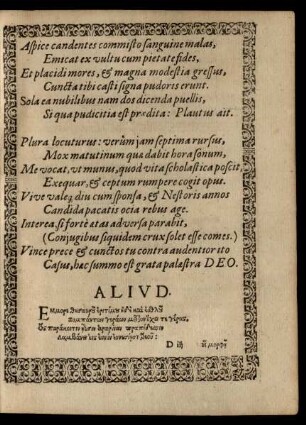 Aspice candentes commisto sanguine malas,
Emicat ex vultu cum pietate fides,
Et placidi mores, & magna modestia gressus,
Cuncta tibi casti signa pudoris erunt.
Sola ea nubilibus nam dos dicenda puellis,
Si qua pudicitia est prædita: Plautus ait.
Plura locuturus: verùm jam septima rursus,
Mox matutinum qua dabit hora sonum,
Me vocat, vt munus, quod vita scholastica poscit,
Exequar, & cœptum rumpere cogit opus.
Vive valeq; diu cum sponsa, & Nestoris annos
Candida pacatis ocia rebus age.
Interea si fortè ætas adversa parabit,
(Conjugibus siquidem crux solet esse comes.)
Vince prece & cunctos tu contra audentior ito
Casus, hac summo est grata palæstra DEO.
ALIVD.
D iij